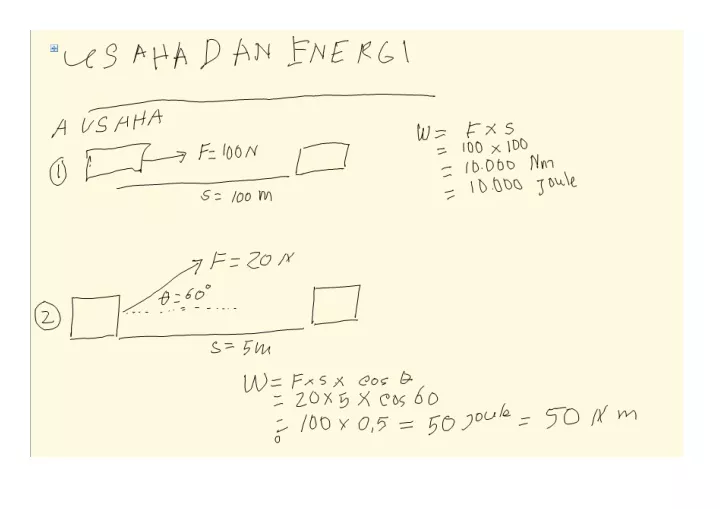 USAHA DAN ENERGI
A USAHA
1 F = 100 N
S = 100 m
W = F x S
= 100 x 100
= 10.000 Nm
= 10.000 Joule
F = 20 N
θ = 60°
2
S = 5m
W = F x S x cos θ
= 20 x 5 x cos 60
= 100 x 0,5 = 50 joule = 50 N m